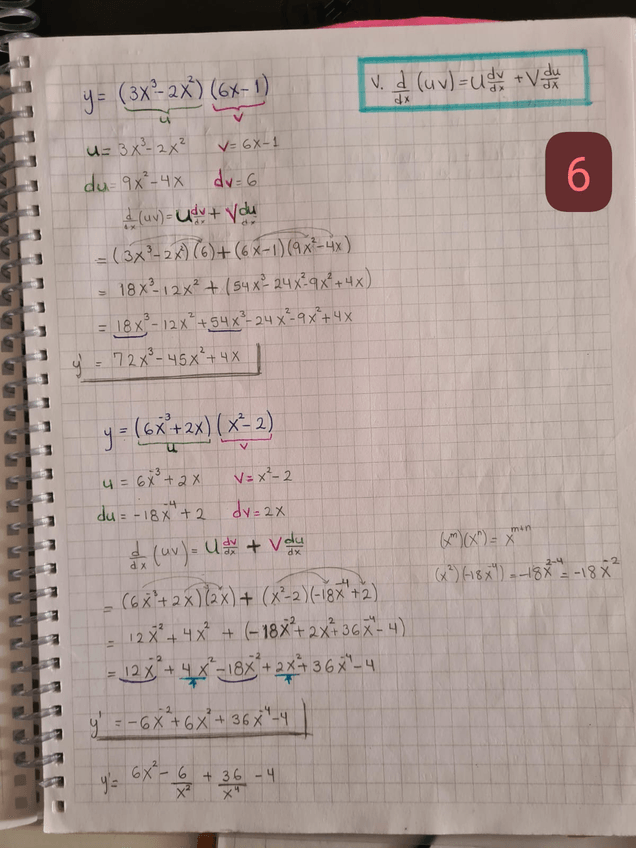 y = (3x³-2x²)(6x-1)
u v
V. d/dx (uv) = u dv/dx + v du/dx
6
u = 3x³-2x² v = 6x-1
du = 9x²-4x dv = 6
d/dx (uv) = u dv/dx + v du/dx
= (3x³-2x²)(6) + (6x-1)(9x²-4x)
= 18x³-12x² + (54x³-24x²-9x²+4x)
= 18x³-12x²+54x³-24x²-9x²+4x
y' = 72x³-45x²+4x
y = (6x⁻³+2x)(x²-2)
u v
u = 6x⁻³+2x v = x²-2
du = -18x⁻⁴+2 dv = 2x
d/dx (uv) = u dv/dx + v du/dx
(xᵐ)(xⁿ) = xᵐ⁺ⁿ
(x²)(-18x⁻⁴) = -18x²⁻⁴ = -18x⁻²
= (6x⁻³+2x)(2x) + (x²-2)(-18x⁻⁴+2)
= 12x⁻²+4x² + (-18x⁻²+2x²+36x⁻⁴-4)
= 12x⁻²+4x²-18x⁻²+2x²+36x⁻⁴-4
y' = -6x⁻²+6x²+36x⁻⁴-4
y' = 6x² - 6/x² + 36/x⁴ - 4